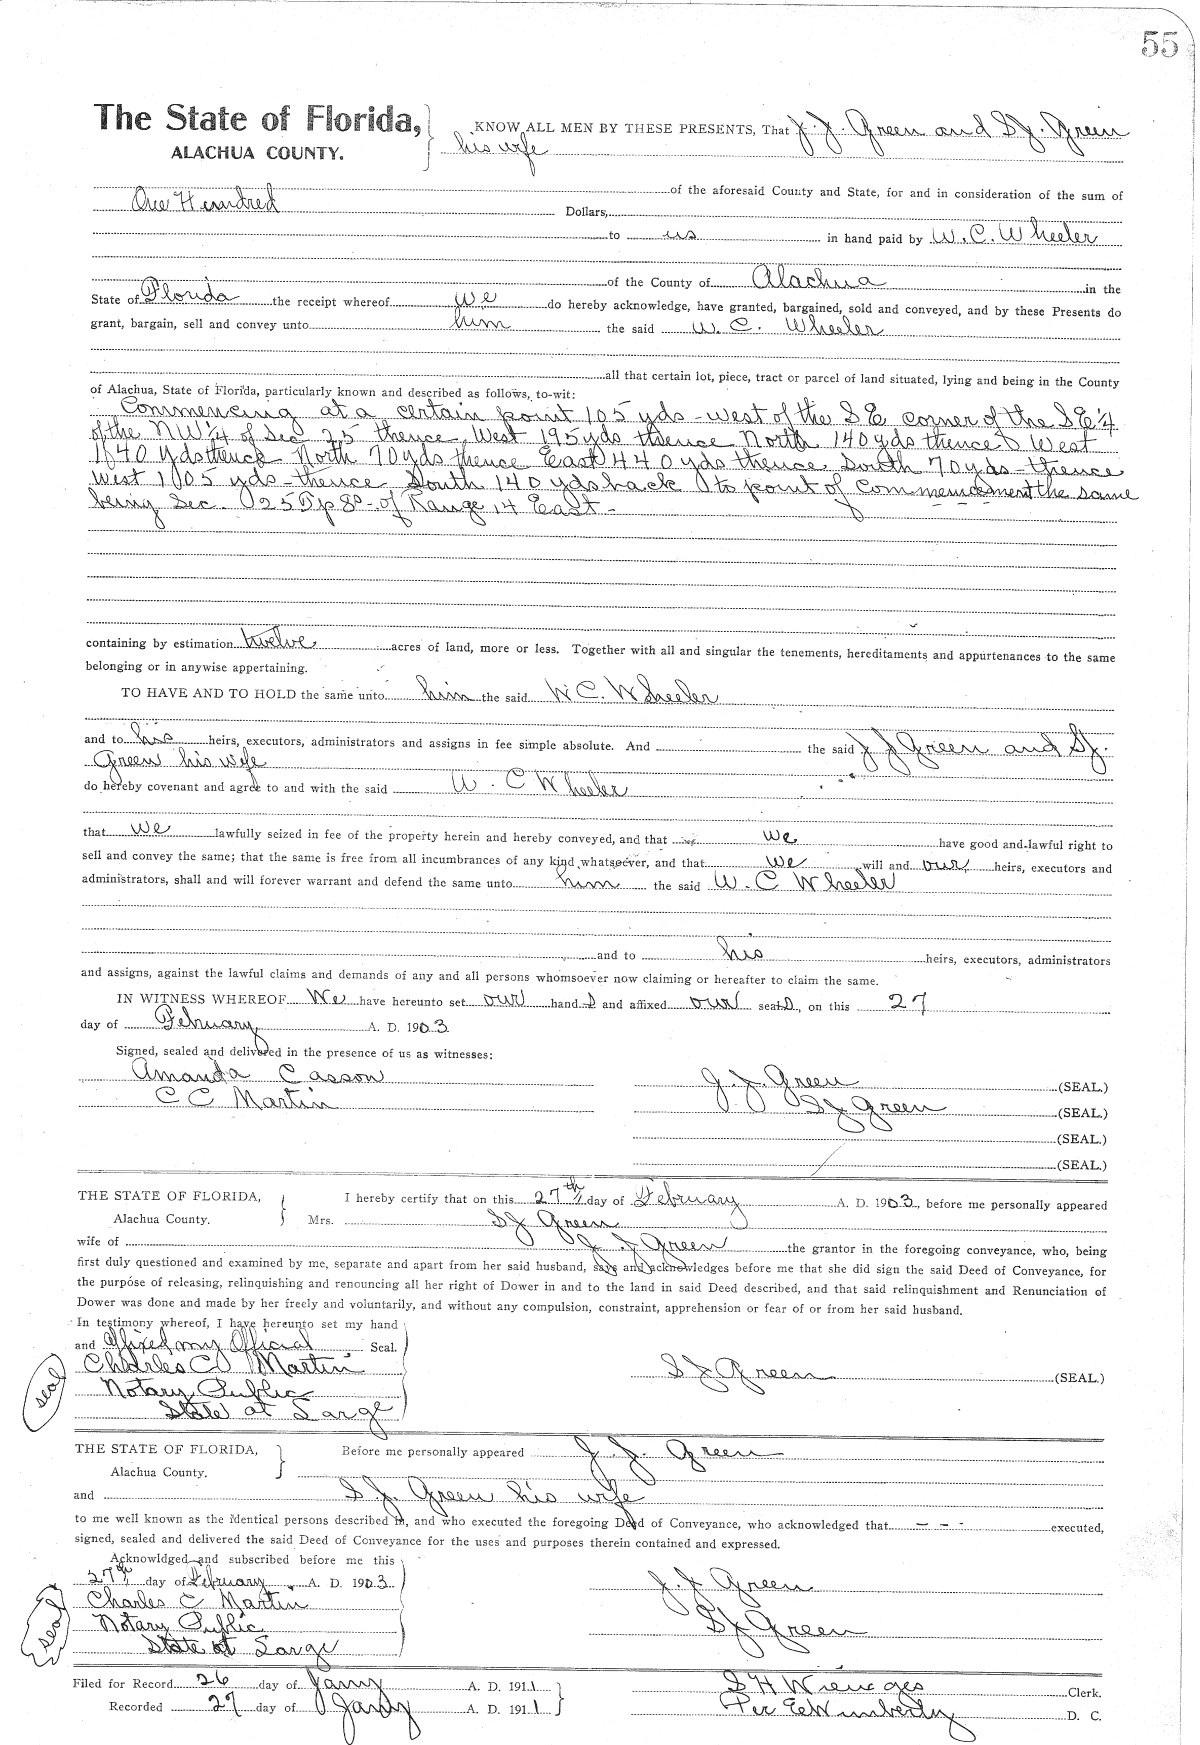 55
The State of Florida,
ALACHUA COUNTY.
KNOW ALL MEN BY THESE PRESENTS, That J. J. Green and S J. Green
his wife
of the aforesaid County and State, for and in consideration of the sum of
One Hundred Dollars,
to us in hand paid by W. C. Wheeler
of the County of Alachua in the
State of Florida the receipt whereof we do hereby acknowledge, have granted, bargained, sold and conveyed, and by these Presents do
grant, bargain, sell and convey unto him the said W. C. Wheeler
all that certain lot, piece, tract or parcel of land situated, lying and being in the County
of Alachua, State of Florida, particularly known and described as follows, to-wit:
Commencing at a certain point 105 yds - West of the S E corner of the S E 1/4
of the NW 1/4 of Sec 25 thence West 195 yds thence North 140 yds thence West
140 yds thence North 70 yds thence East 440 yds thence South 70 yds - thence
West 105 yds - thence South 140 yds back to point of Commencement the same
being Sec. 25 Tp 8 - of Range 17 East -
containing by estimation twelve acres of land, more or less. Together with all and singular the tenements, hereditaments and appurtenances to the same
belonging or in anywise appertaining.
TO HAVE AND TO HOLD the same unto him the said W C. Wheeler
and to his heirs, executors, administrators and assigns in fee simple absolute. And the said J J Green and S J.
Green his wife
do hereby covenant and agree to and with the said W. C Wheeler
that we lawfully seized in fee of the property herein and hereby conveyed, and that we have good and lawful right to
sell and convey the same; that the same is free from all incumbrances of any kind whatsoever, and that we will and our heirs, executors and
administrators, shall and will forever warrant and defend the same unto him the said W. C Wheeler
and to his heirs, executors, administrators
and assigns, against the lawful claims and demands of any and all persons whomsoever now claiming or hereafter to claim the same.
IN WITNESS WHEREOF We have hereunto set our hand s and affixed our seal s, on this 27
day of February A. D. 1903
Signed, sealed and delivered in the presence of us as witnesses:
Amanda Casson
C C Martin
J. J. Green (SEAL.)
S J Green (SEAL.)
(SEAL.)
(SEAL.)
THE STATE OF FLORIDA,
Alachua County.
I hereby certify that on this 27th day of February A. D. 1903, before me personally appeared
Mrs. S J Green
wife of J J Green the grantor in the foregoing conveyance, who, being
first duly questioned and examined by me, separate and apart from her said husband, says and acknowledges before me that she did sign the said Deed of Conveyance, for
the purpose of releasing, relinquishing and renouncing all her right of Dower in and to the land in said Deed described, and that said relinquishment and Renunciation of
Dower was done and made by her freely and voluntarily, and without any compulsion, constraint, apprehension or fear of or from her said husband.
In testimony whereof, I have hereunto set my hand
and affixed my Official Seal.
Charles C Martin
Notary Public
State at Large
seal
S J Green (SEAL.)
THE STATE OF FLORIDA,
Alachua County.
Before me personally appeared J. J. Green
and S. J. Green his wife
to me well known as the identical persons described in, and who executed the foregoing Deed of Conveyance, who acknowledged that - - - executed,
signed, sealed and delivered the said Deed of Conveyance for the uses and purposes therein contained and expressed.
Acknowldged and subscribed before me this
27th day of February A. D. 1903
Charles C Martin
Notary Public
State at Large
seal
J. J Green
S J Green
Filed for Record 26 day of Jany A. D. 1911
Recorded 27 day of Jany A. D. 1911
S H Wienges Clerk.
Per E Wimberly D. C.